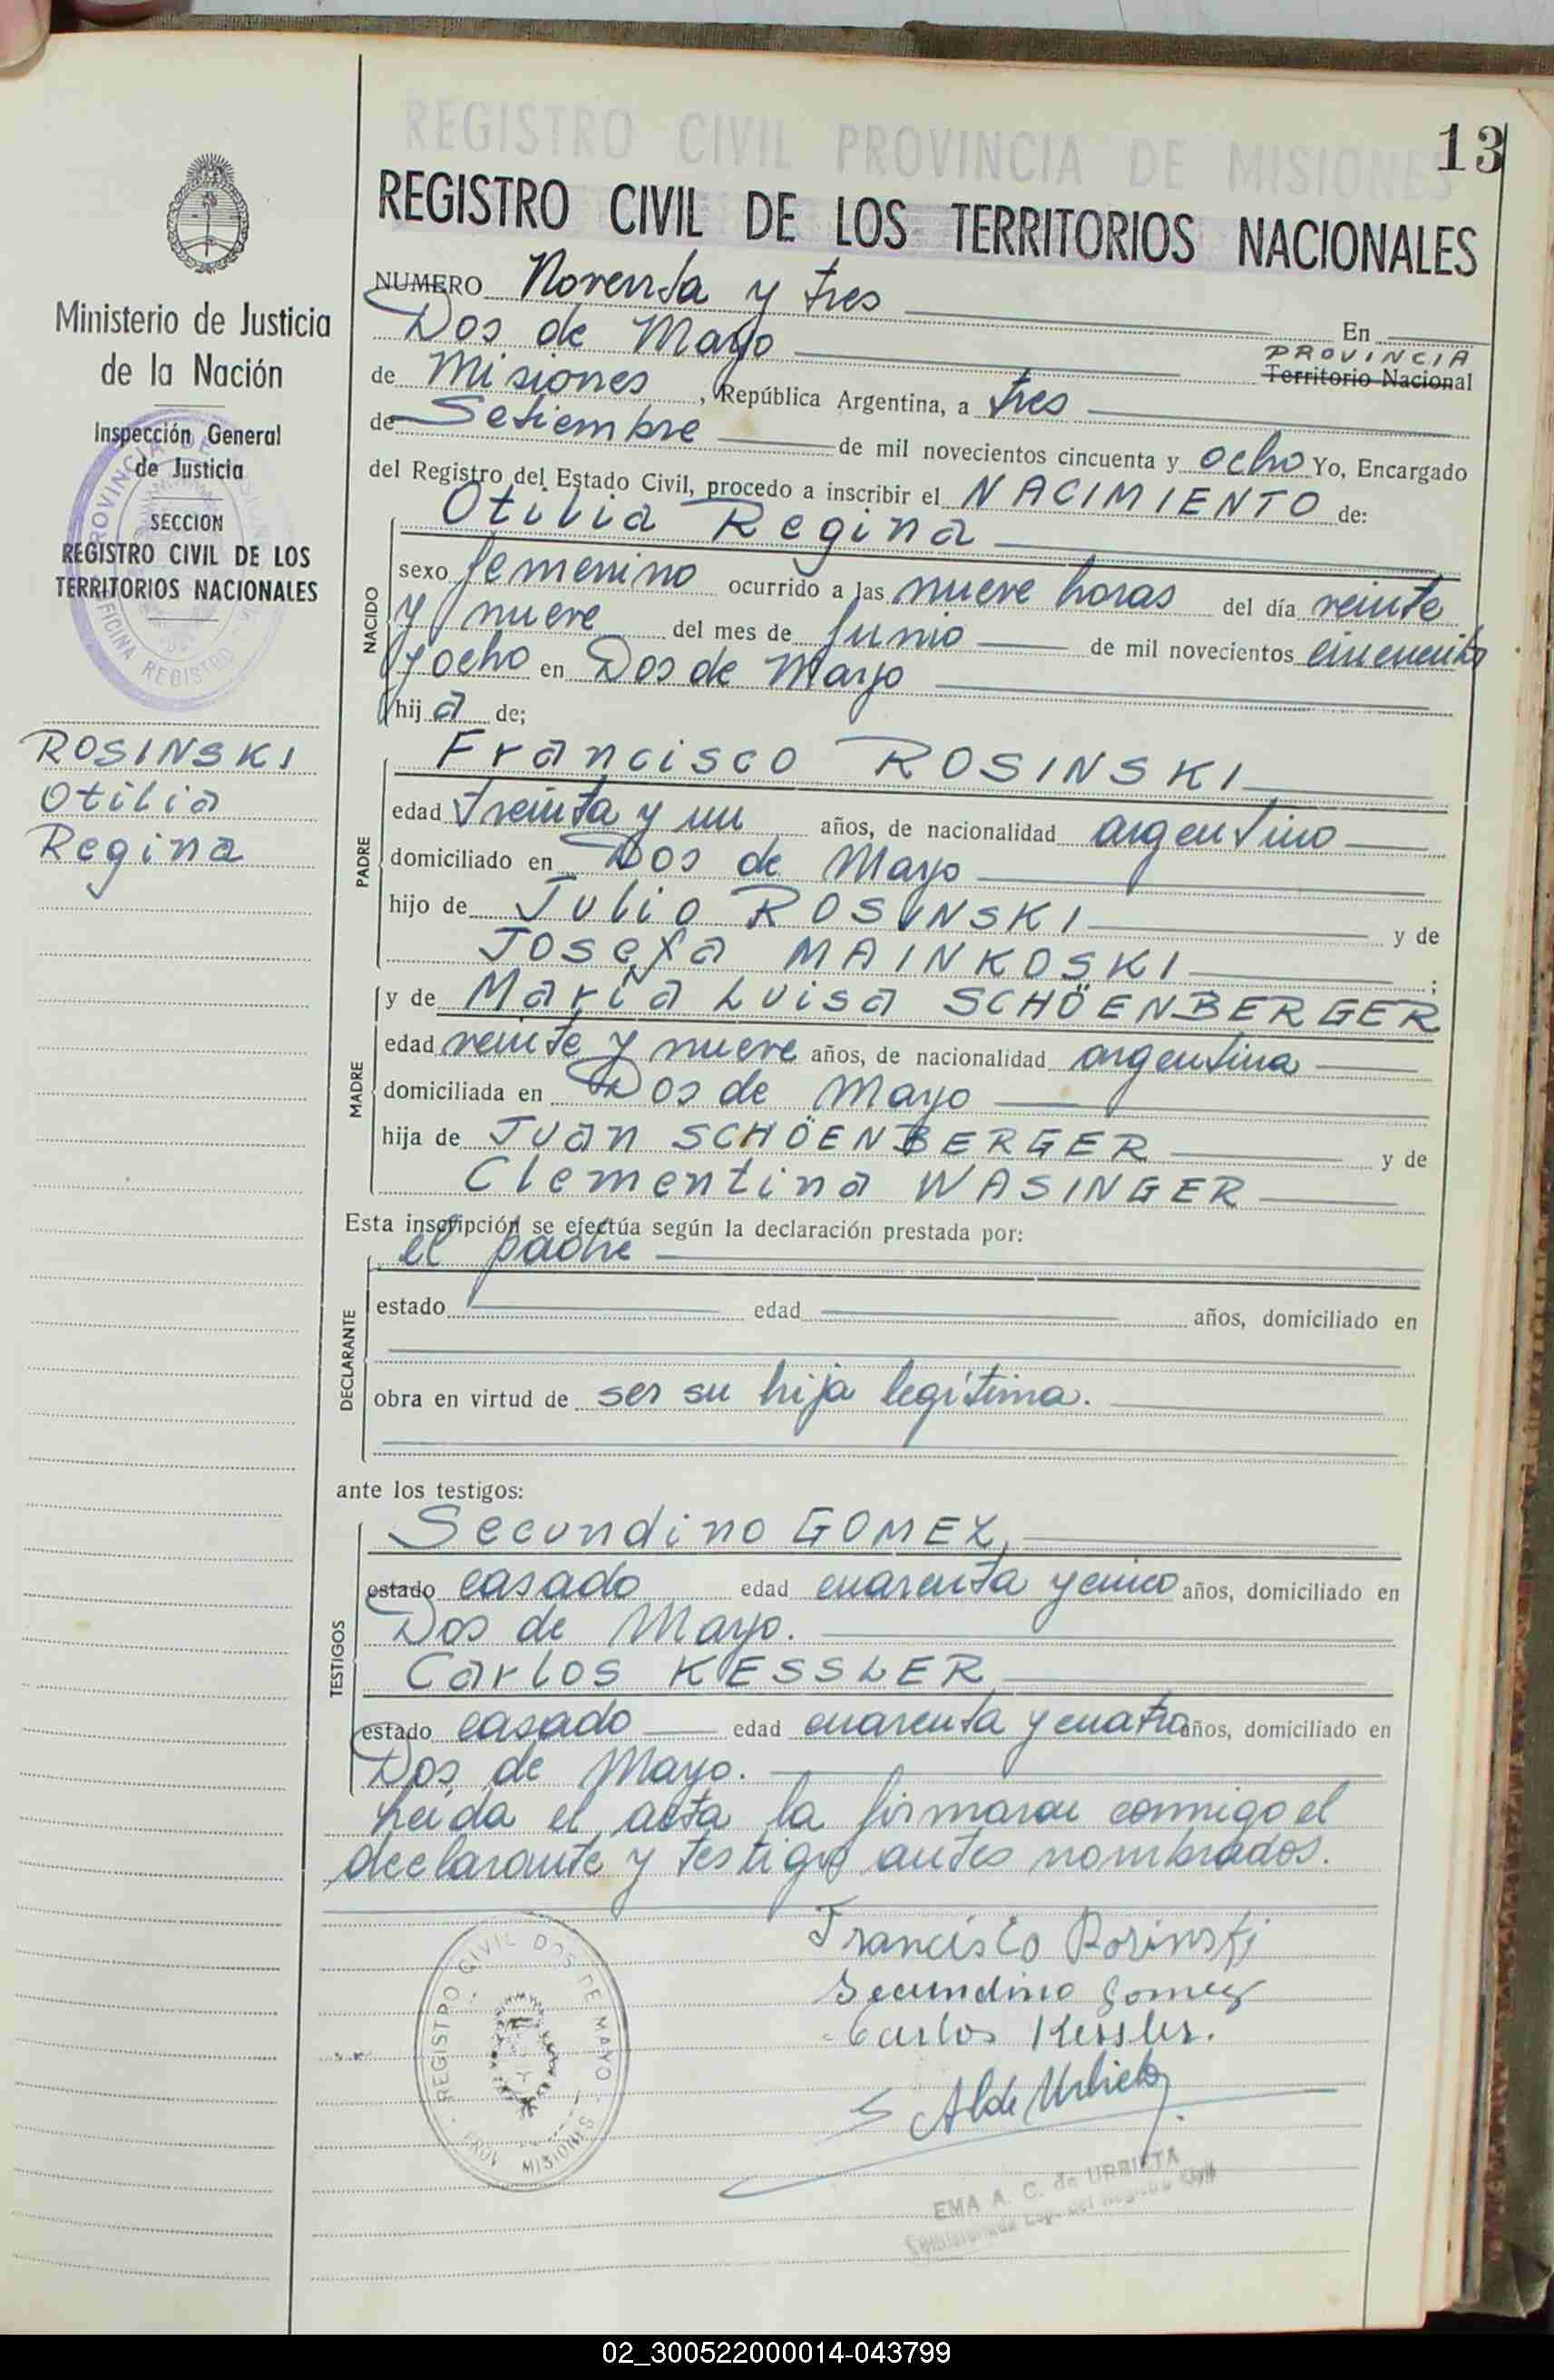 REGISTRO CIVIL PROVINCIA DE MISIONES
13
REGISTRO CIVIL DE LOS TERRITORIOS NACIONALES
Ministerio de Justicia
de la Nación
Inspección General
de Justicia
SECCION
REGISTRO CIVIL DE LOS
TERRITORIOS NACIONALES
PROVINCIA DE MISIONES
OFICINA REGISTRO
ROSINSKI
Otilia
Regina
NUMERO Noventa y tres En
Dos de Mayo PROVINCIA
Territorio Nacional
de Misiones, República Argentina, a tres
de Setiembre de mil novecientos cincuenta y ocho Yo, Encargado
del Registro del Estado Civil, procedo a inscribir el NACIMIENTO de:
Otilia Regina
NACIDO
sexo femenino ocurrido a las nueve horas del día veinte
y nueve del mes de Junio de mil novecientos cincuenta
y ocho en Dos de Mayo
hij a de;
Francisco ROSINSKI
PADRE
edad treinta y un años, de nacionalidad argentino
domiciliado en Dos de Mayo
hijo de Julio ROSINSKI y de
Josefa MAINKOSKI;
y de María Luisa SCHÖENBERGER
MADRE
edad veinte y nueve años, de nacionalidad argentina
domiciliada en Dos de Mayo
hija de Juan SCHÖENBERGER y de
Clementina WASINGER
Esta inscripción se efectúa según la declaración prestada por:
el padre
DECLARANTE
estado edad años, domiciliado en
obra en virtud de ser su hija legítima.
ante los testigos:
Secundino GOMEZ,
TESTIGOS
estado casado edad cuarenta y cinco años, domiciliado en
Dos de Mayo.
Carlos KESSLER
estado casado edad cuarenta y cuatro años, domiciliado en
Dos de Mayo.
Leída el acta la firmaran conmigo el
declarante y testigos antes nombrados.
REGISTRO CIVIL DOS DE MAYO
PROV. MISIONES
Francisco Rosinski
Secundino Gomez
Carlos Kessler.
EMA A. C. de URRIETA
del Registro Civil
02_300522000014-043799